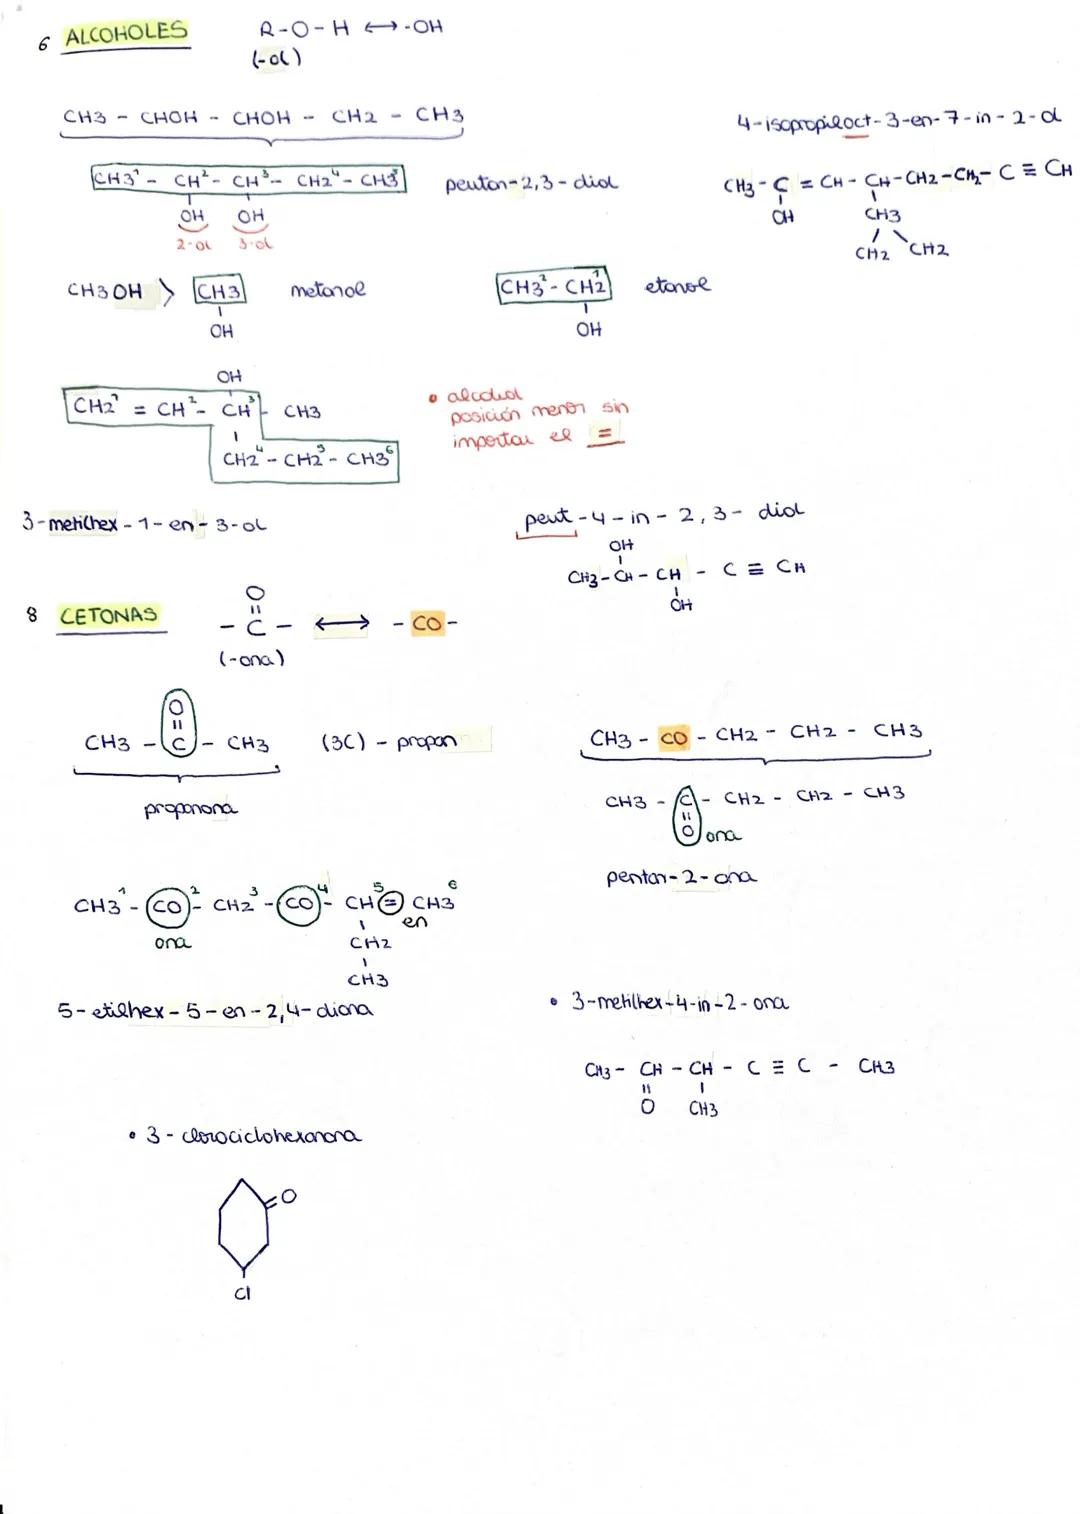 6 ALCOHOLES R-O-H ↔ -OH
(-ol)
CH3 - CHOH - CHOH - CH2 - CH3
4-isopropiloct-3-en-7-in-2-ol
CH3¹ - CH² - CH³ - CH2⁴ - CH3⁵ pentan-2,3-diol
OH OH
2-ol 3-ol
CH3 - C = CH - CH - CH2 - CH2 - C ≡ CH
OH CH3
CH2 CH2
CH3OH > CH3 metanol
OH
CH3² - CH2¹ etanol
OH
OH
CH2¹ = CH² - CH³ - CH3
CH2⁴ - CH2⁵ - CH3⁶
• alcohol
posición menor sin
importar el =
3-metilhex-1-en-3-ol
pent-4-in-2,3-diol
OH
CH3 - CH - CH - C ≡ CH
OH
8 CETONAS
O
=
- C - ↔ - CO -
(-ona)
O
=
CH3 - C - CH3 (3C) - propan
propanona
CH3 - CO - CH2 - CH2 - CH3
CH3 - C - CH2 - CH2 - CH3
=
O ona
pentan-2-ona
CH3¹ - CO² - CH2³ - CO⁴ - CH⁵ = CH3⁶
ona en
CH2
CH3
5-etilhex-5-en-2,4-diona
• 3-metilhex-4-in-2-ona
CH3 - CH - CH - C ≡ C - CH3
=
O CH3
• 3-clorociclohexanona
O
Cl